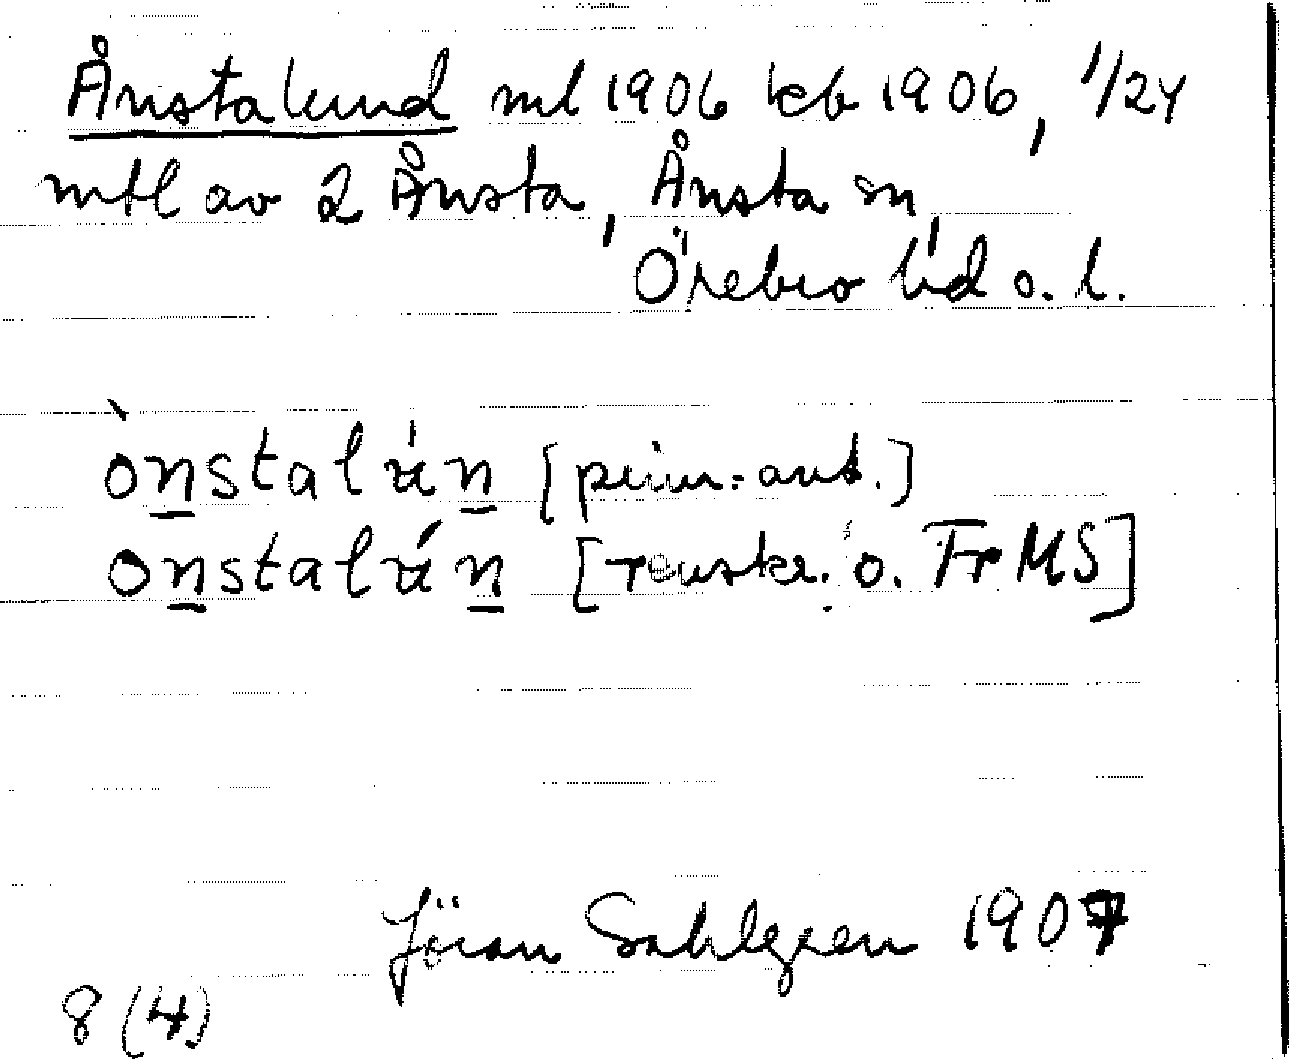 Ånstalund ml 1906 kb 1906, 1/24
mtl av 2 Ånsta, Ånsta sn,
Örebro hd o. l.
ònstalún [prim.-ant.]
onstalún [renskr. o. Fr MS]
Jöran Sahlgren 1907
8 (4)